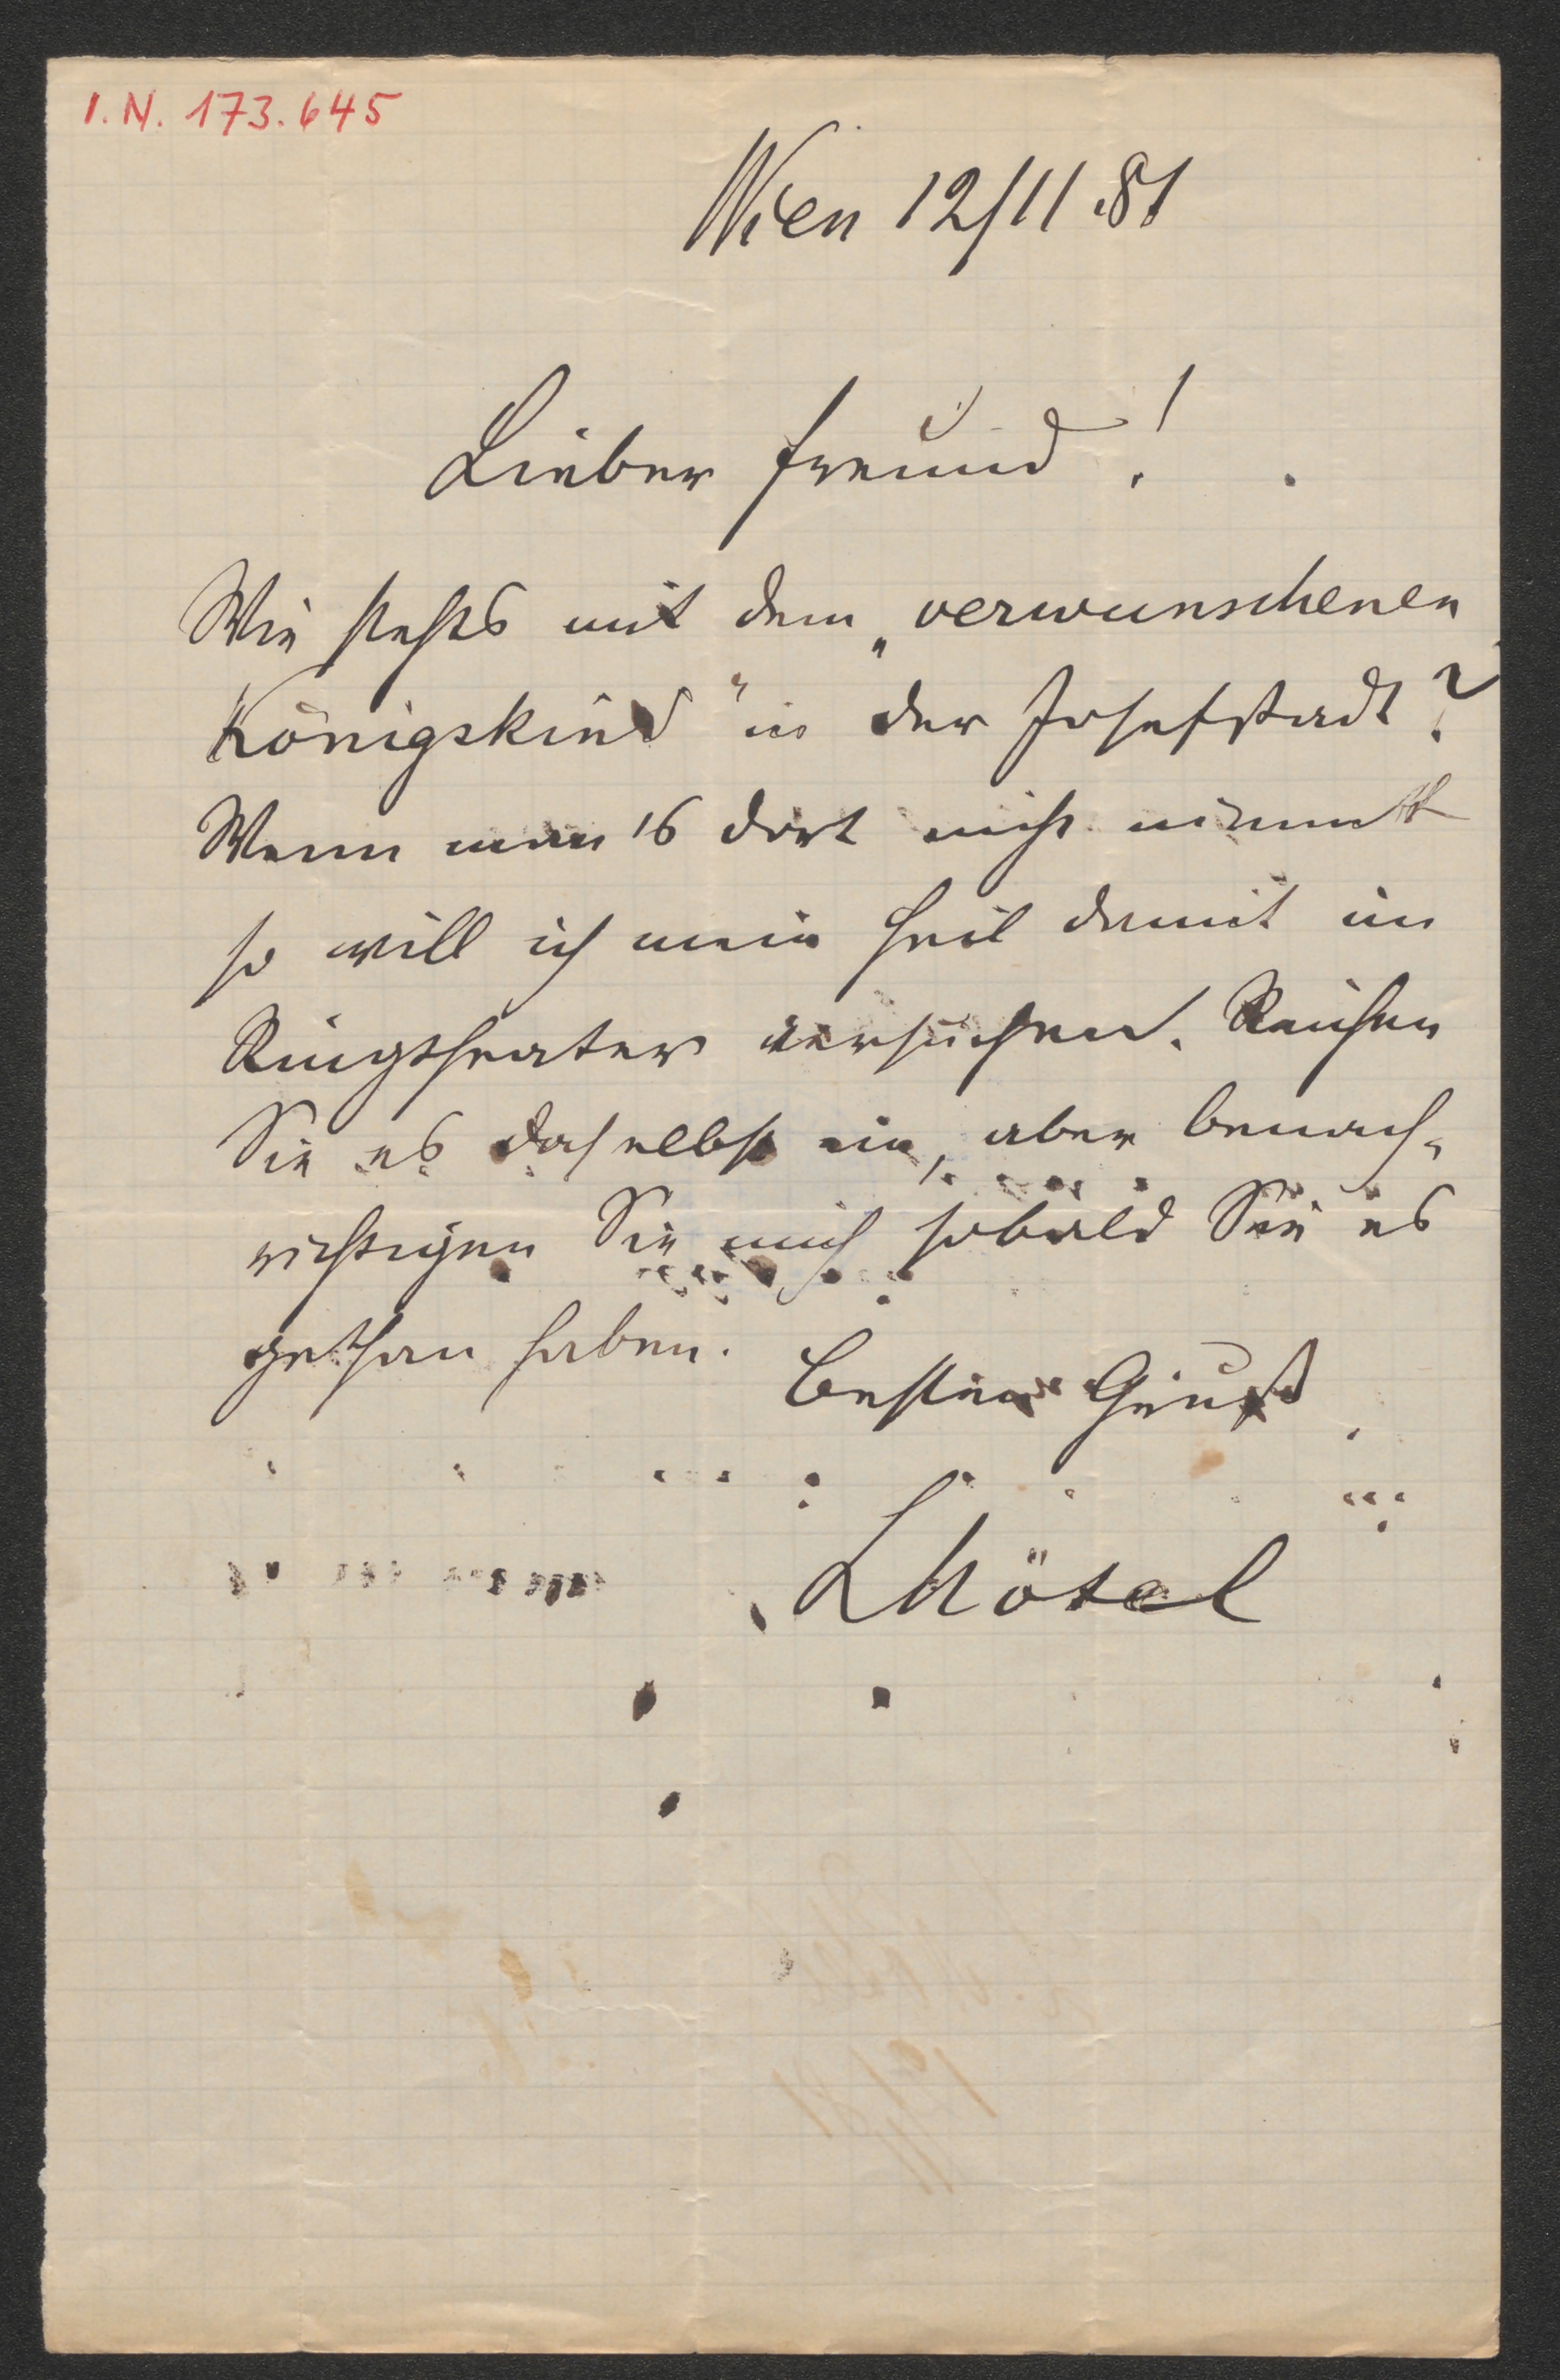 I.N. 173.645
Wien 12/11.81
Lieber Freund!
Wie stehts mit dem „verwunschenen
Königskind" in der Josefstadt?
Wenn man 's dort nicht nimmt
so will ich mein Heil damit im
Ringtheater versuchen. Reichen
Sie es daselbst ein, aber benach-
richtigen Sie mich sobald Sie es
gethan haben.
Besten Gruß